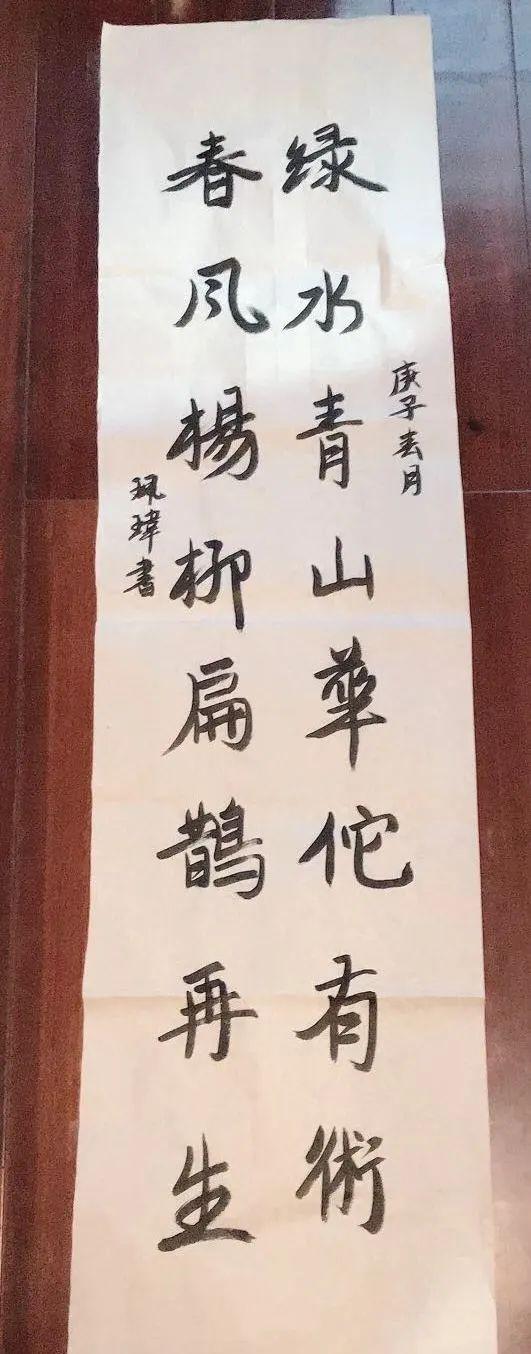 庚子春月
绿水青山華佗有術
春风楊柳扁鵲再生
珮瑋書